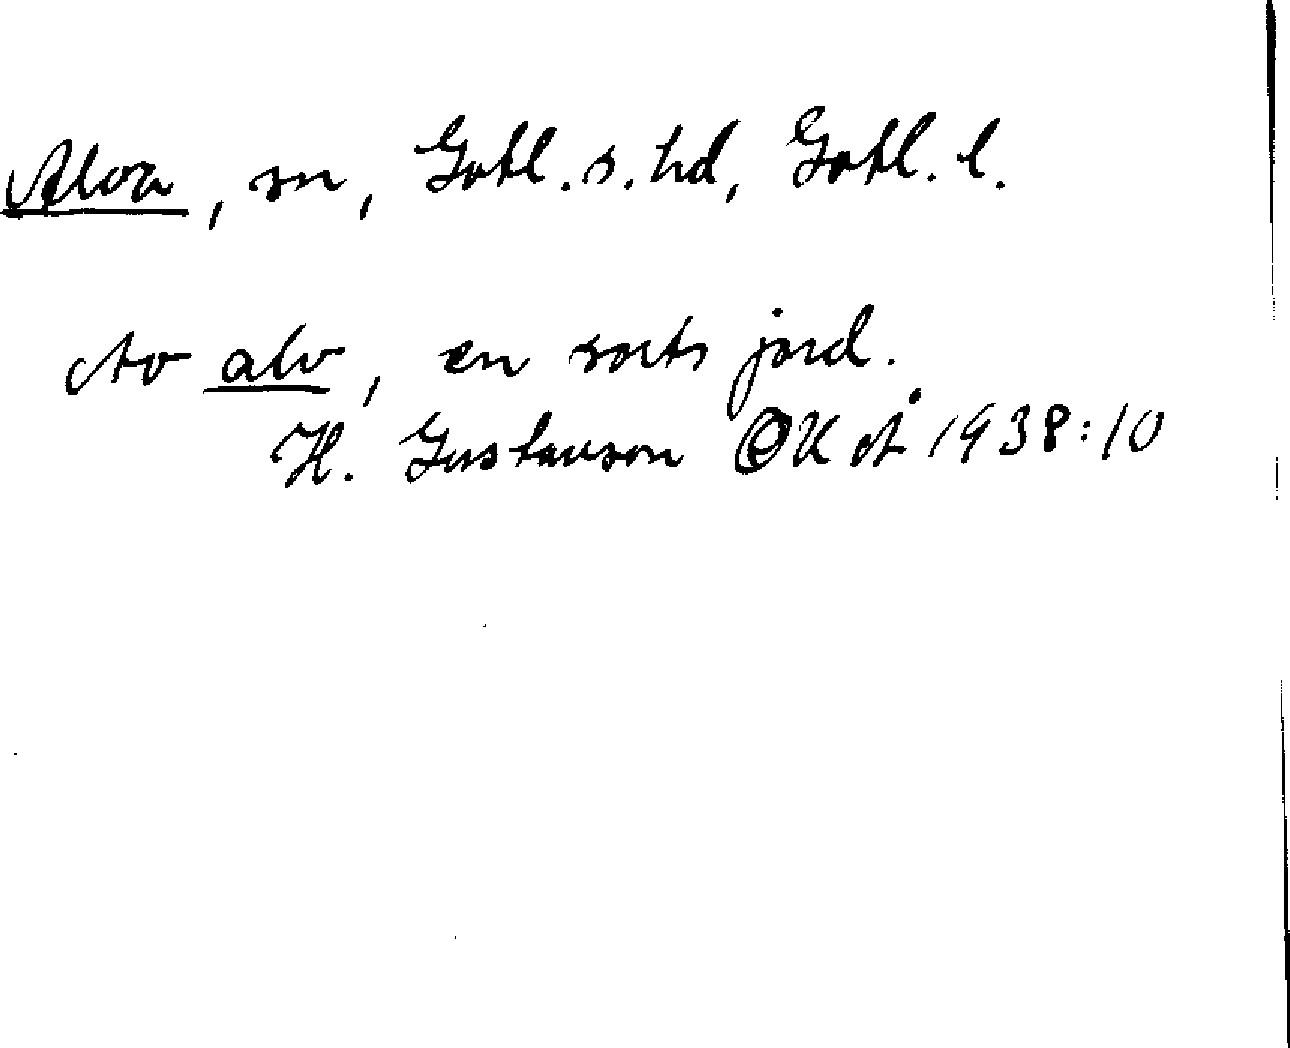 Alva, sn, Gotl. s. hd, Gotl. l.
Av alv, en sorts jord.
H. Gustavson OK Å 1938:10